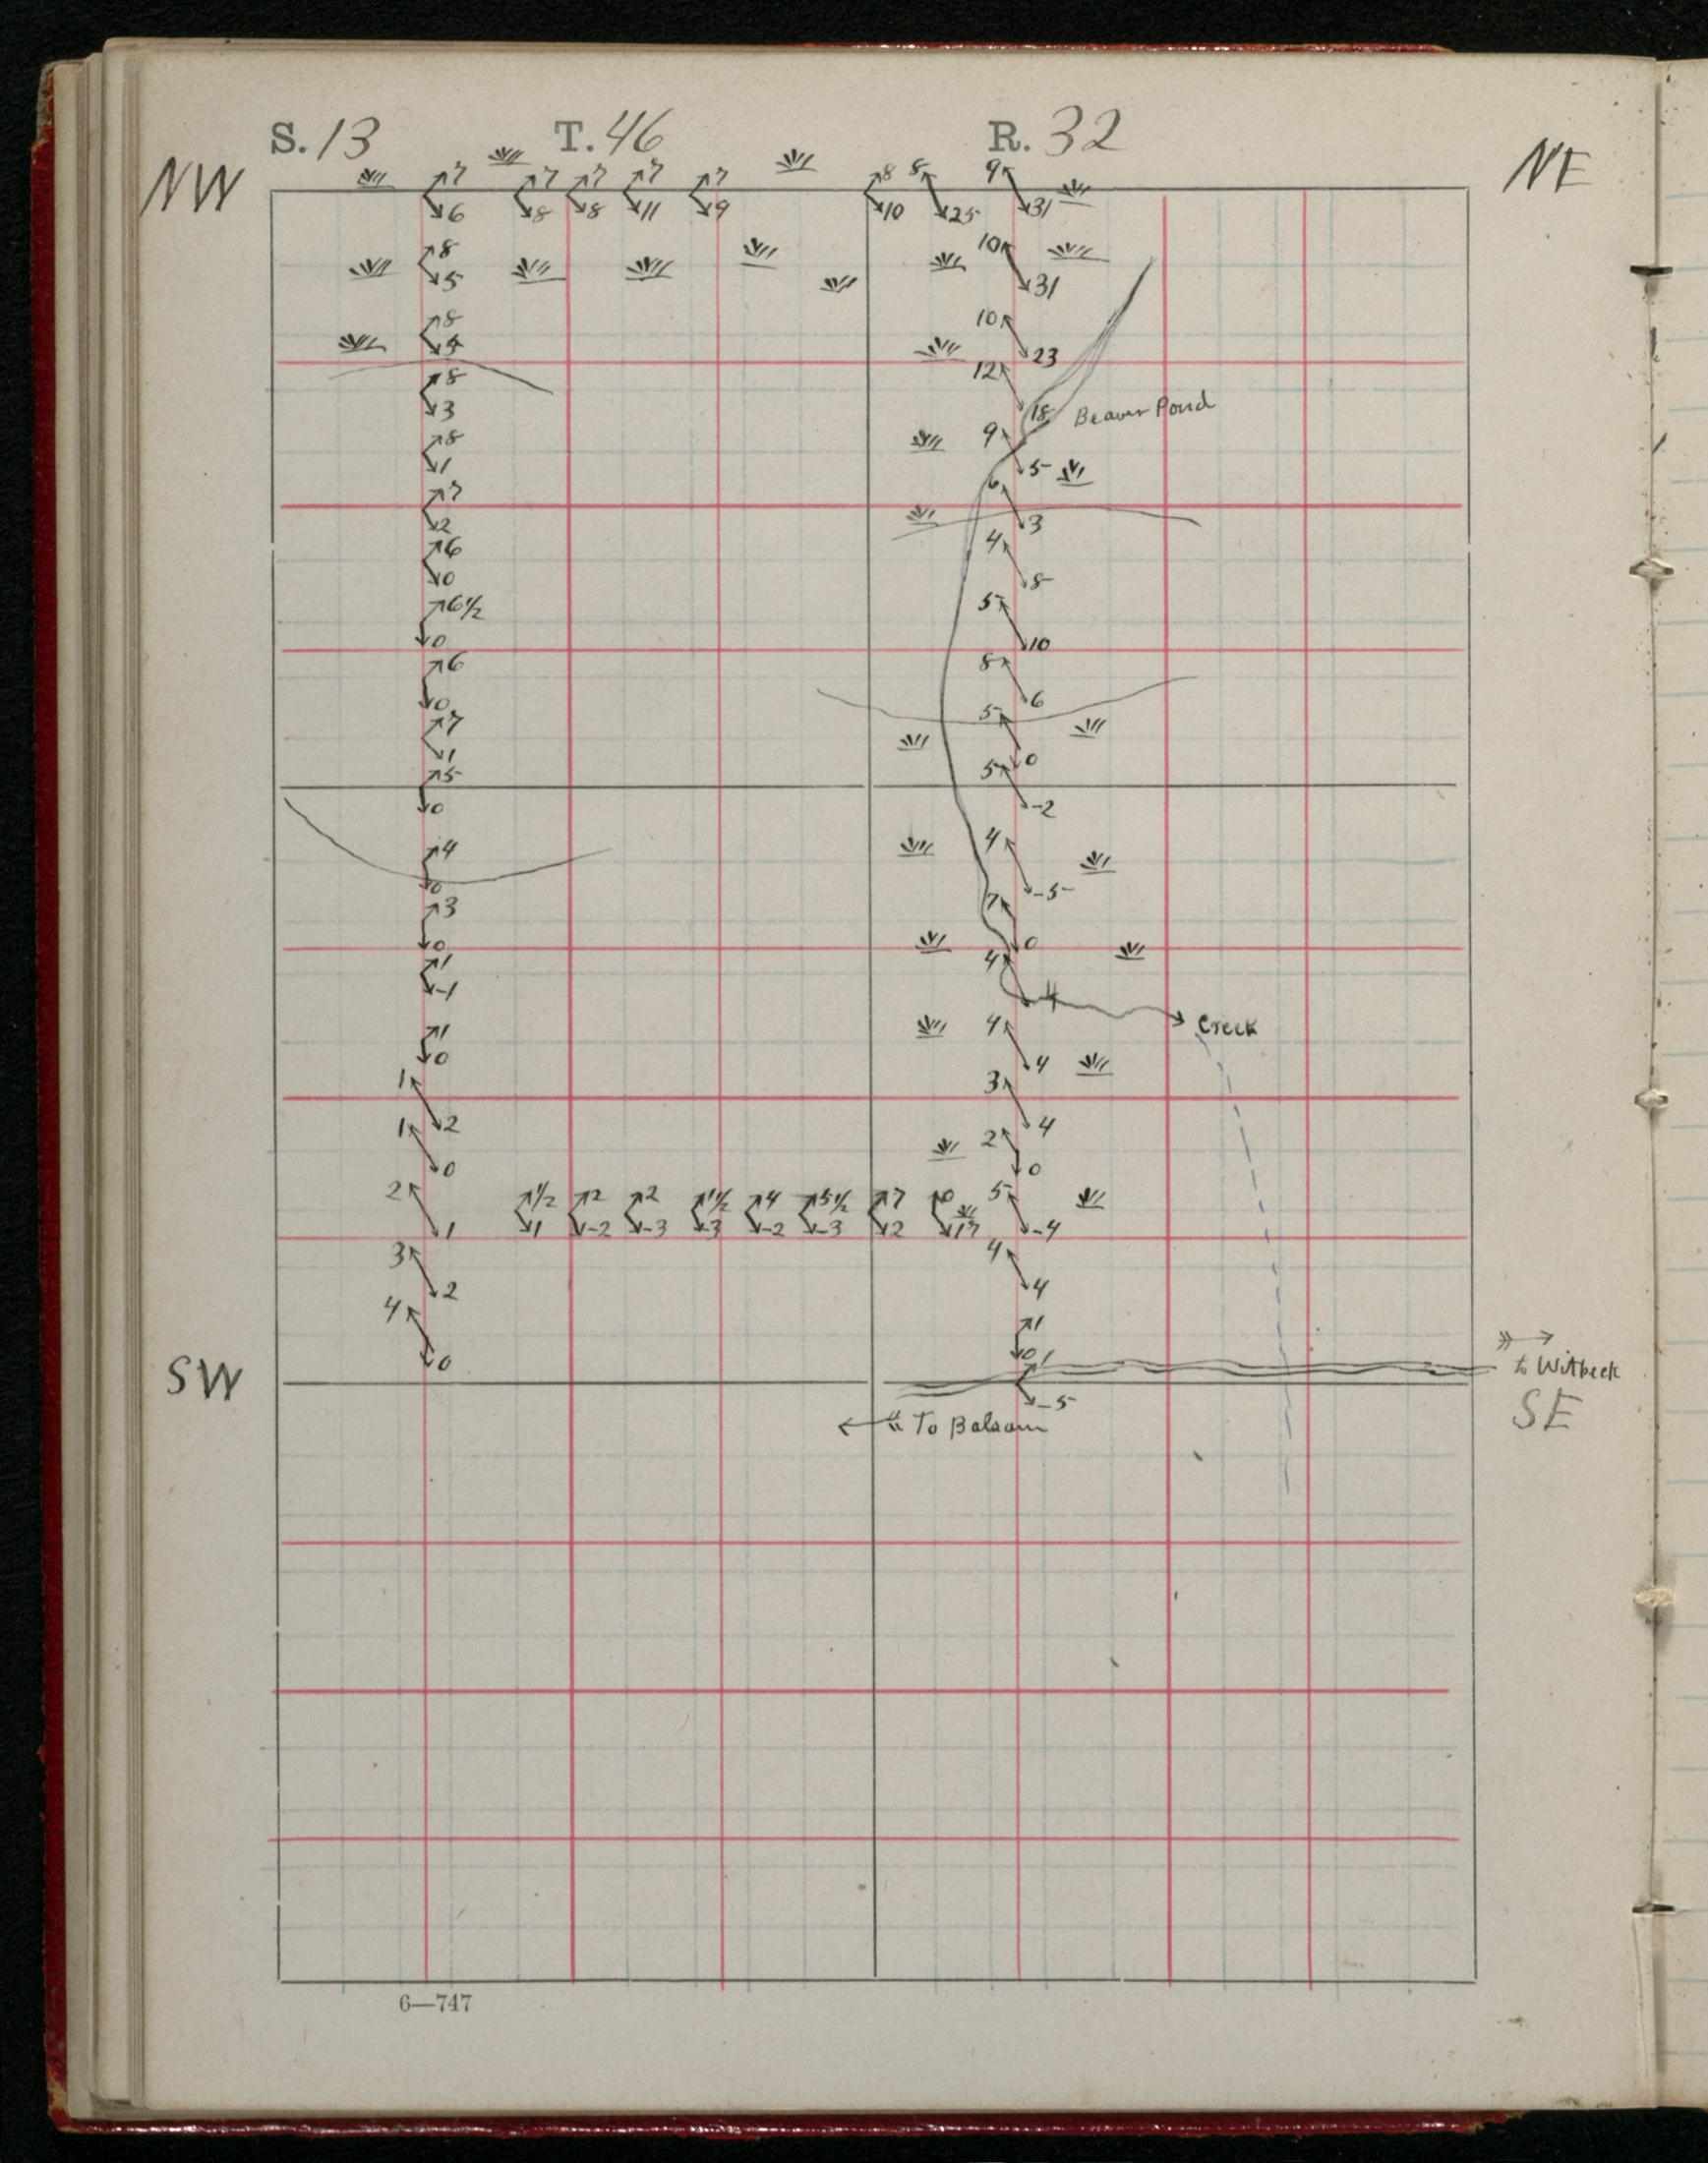 S. 13 T. 46 R. 32
NW NE
7 7 7 7 7 8 8 9
6 8 8 11 9 10 25 31
8 10
5 31
8 10
23
8 12
3 18 Beaver Pond
8 9
1 5
7 6
2 3
6 4
0 8
6 1/2 5
0 10
6 8
0 6
7 5
1 0
5 5
0 -2
4 4
0 -5
3 7
0 0
1 4
-1 4
Creek
1 4
0 4
1 3
2 4
1 2
0 0
2 1/2 2 2 1 1/2 4 5 1/2 7 10 5
1 1 -2 -3 3 -2 -3 2 17 -4
3 4
2 4
4 1
0 0
1
SW to Witbeck
-5 SE
To Balsam
6—747